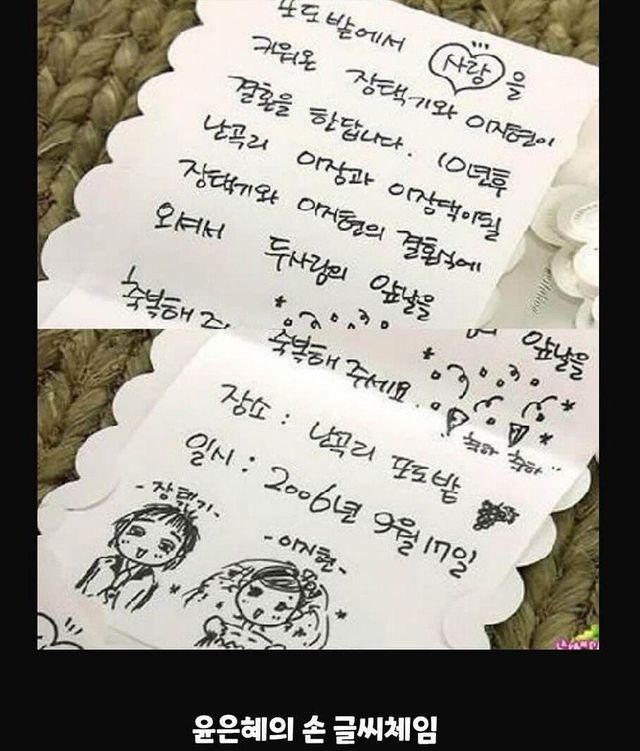 포도밭에서 사랑을
키워온 장택기와 이지현이
결혼을 한답니다. 10년후
난곡리 이장과 이장댁이될
장택기와 이지현의 결혼식에
오셔서 두사람의 앞날을
축복해 주
앞날을
축복해 주세요.
축하 축하..
장소 : 난곡리 포도밭
일시 : 2006년 9월 17일
-장택기-
-이지현-
윤은혜의 손 글씨체임